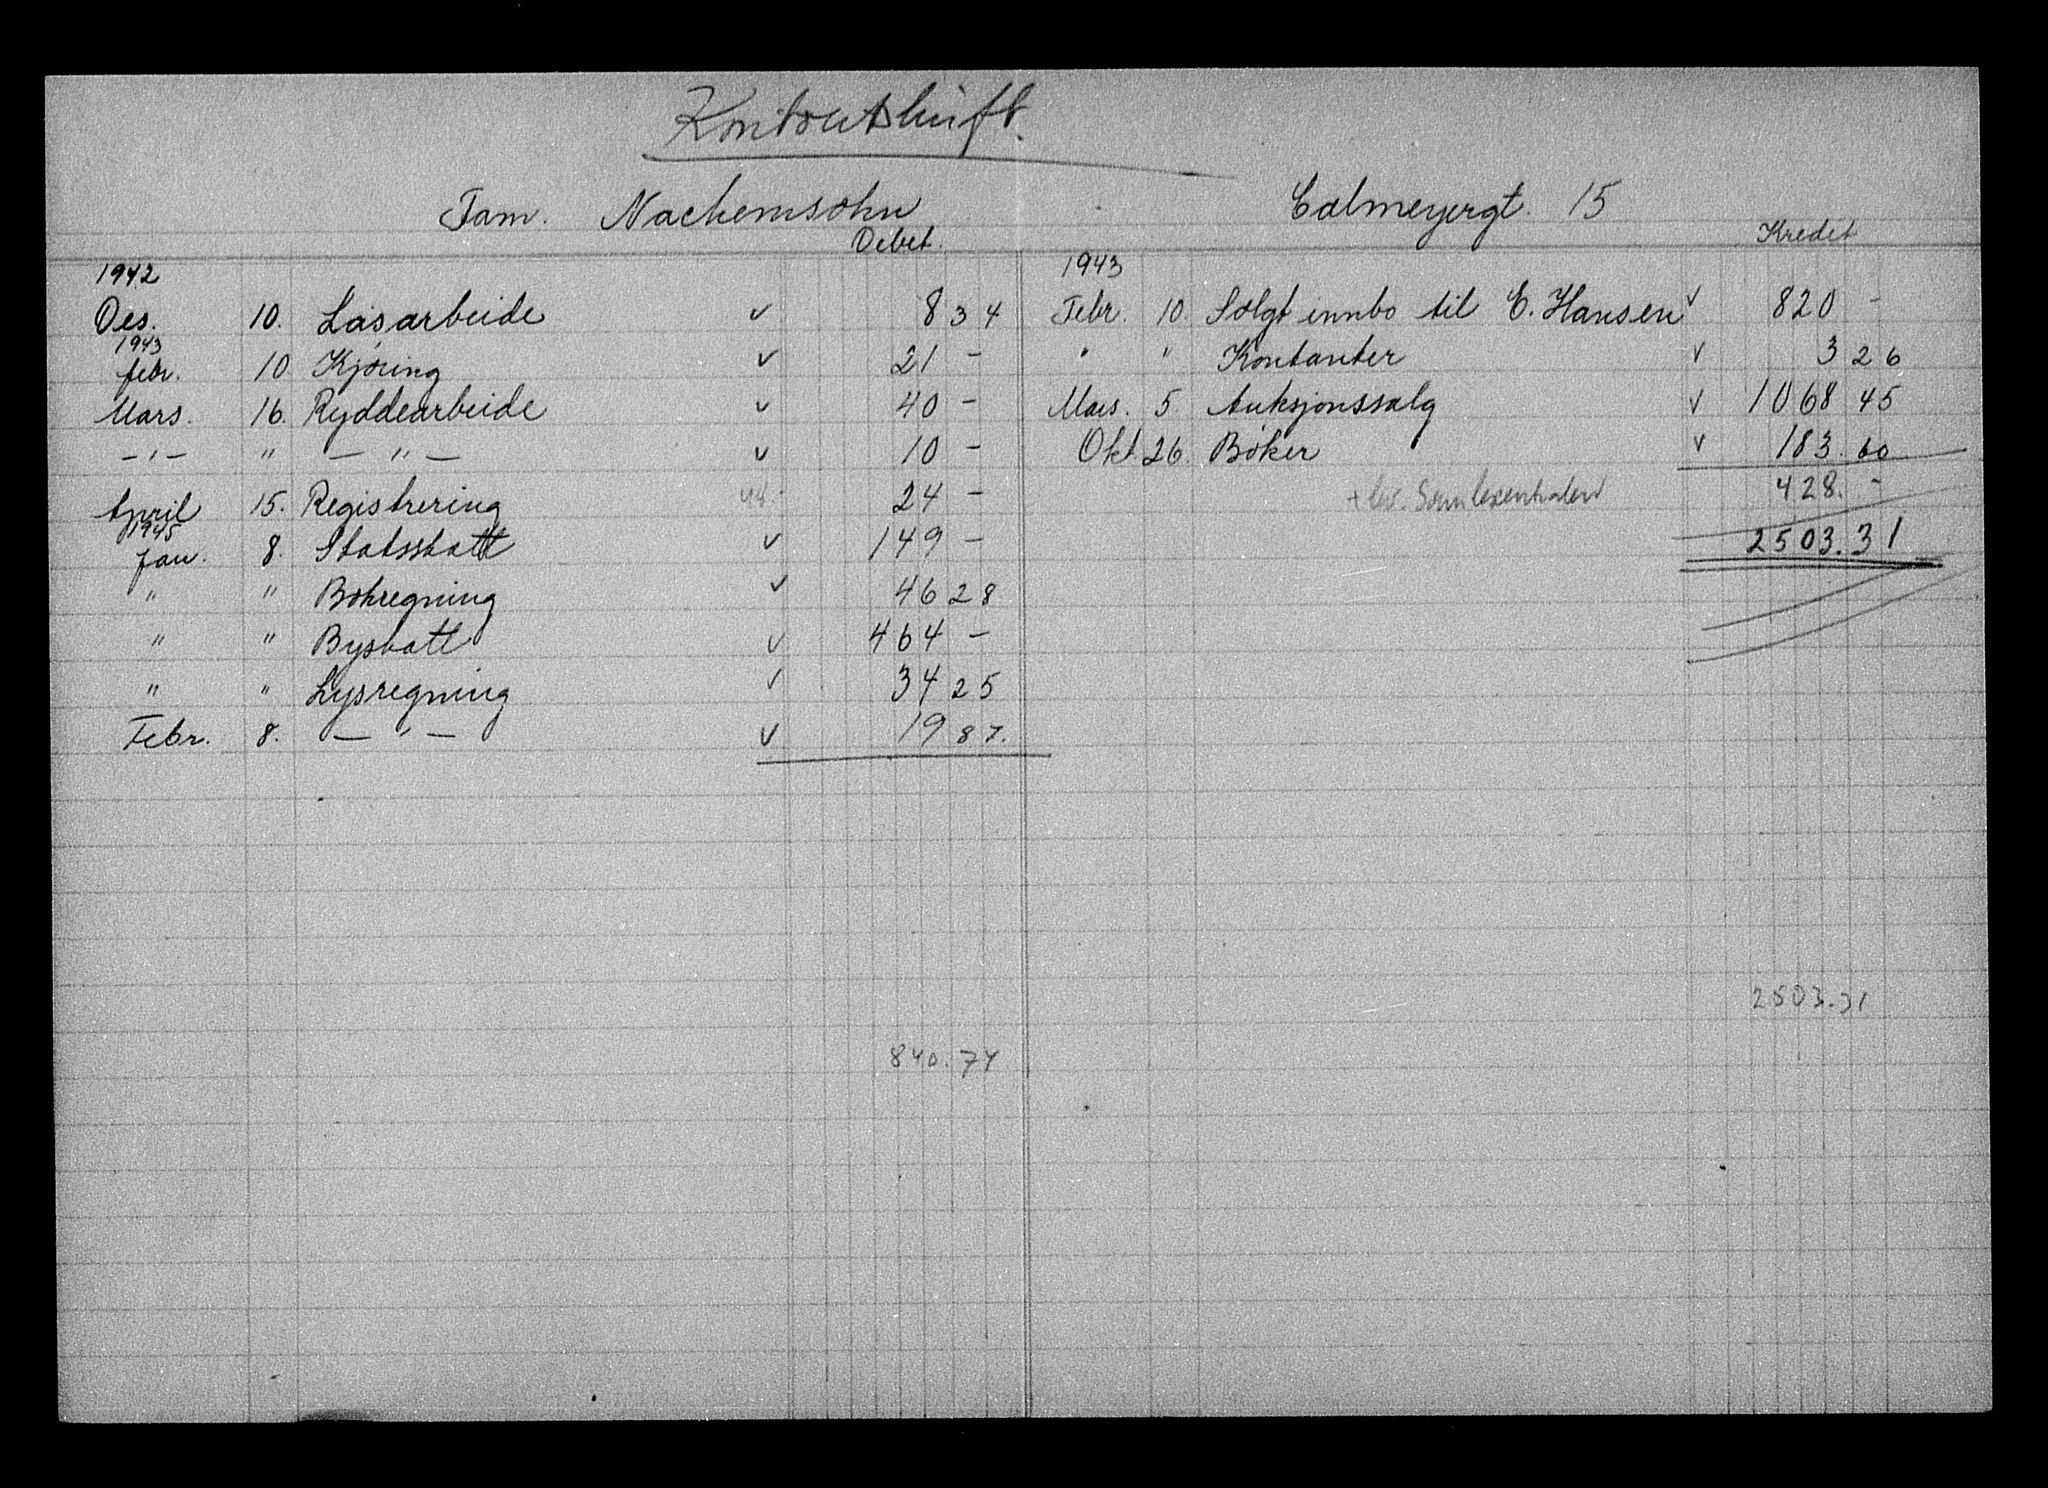 Kontoutskrift.
Fam. Nachemsohn Calmeyergt. 15
Debet. Kredit
1942 1943
Des. 10. Låsarbeide v 8 34 Febr. 10. Solgt innbo til E. Hansen v 820 -
1943
febr. 10 Kjøring v 21 - " " Kontanter v 3 26
Mars. 16. Ryddearbeide v 40 - Mars. 5. Auksjonssalg v 1068 45
- " - " - " - v 10 - Okt. 26. Bøker v 183. 60
April 15. Registrering 24 - + lev. Samlesentralen 428. -
1945
Jan. 8. Statsskatt v 149 - 2503.31
" " Bokregning v 46 28
" " Byskatt v 464 -
" " Lysregning v 34 25
Febr. 8. - " - v 19 87.
2503.31
840.74